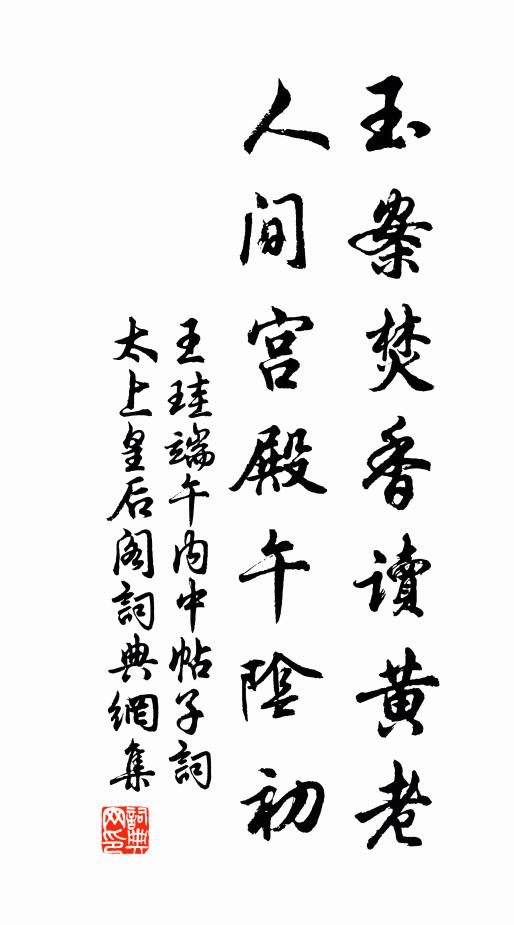 玉案焚香讀黄老
人间宫殿午陰初
王珪端午内中帖子詞
太上皇后阁詞典網集
詞典网印